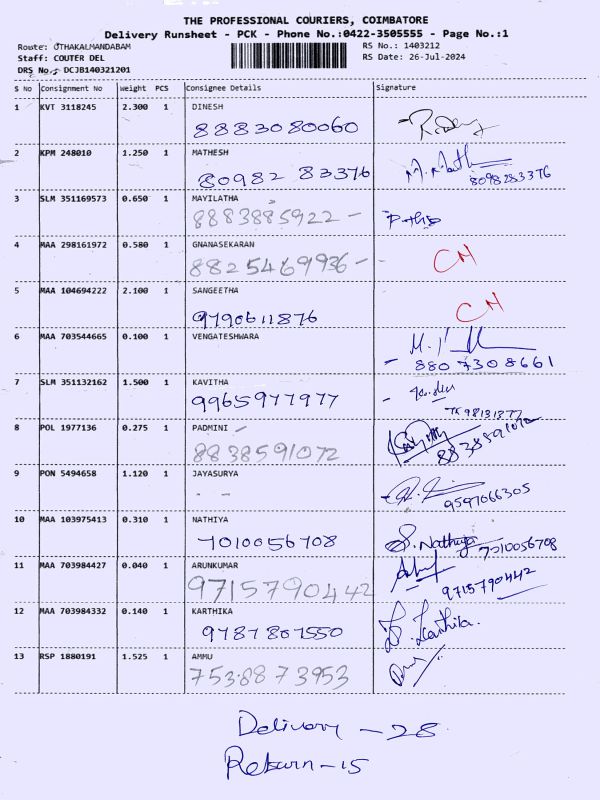 THE PROFESSIONAL COURIERS, COIMBATORE
Delivery Runsheet - PCK - Phone No.:0422-3505555 - Page No.:1
Route: OTHAKALMANDABAM RS No.: 1403212
Staff: COUTER DEL RS Date: 26-Jul-2024
DRS No.: DCJB140321201
S No Consignment No Weight PCS Consignee Details Signature
1 KVT 3118245 2.300 1 DINESH
8883080060
2 KPM 248010 1.250 1 MATHESH
80982 83376
8098283376
3 SLM 351169573 0.650 1 MAYILATHA
8883885922 -
4 MAA 298161972 0.580 1 GNANASEKARAN
8825469936 - CN
5 MAA 104694222 2.100 1 SANGEETHA
9790611876 CN
6 MAA 703544665 0.100 1 VENGATESHWARA
- 8807308661
7 SLM 351132162 1.500 1 KAVITHA
9965977977
8 POL 1977136 0.275 1 PADMINI -
8838591072 8838591072
9 PON 5494658 1.120 1 JAYASURYA
- - 9597066305
10 MAA 103975413 0.310 1 NATHIYA
7010056708 S. Nathiya 7010056708
11 MAA 703984427 0.040 1 ARUNKUMAR
9715790442 9715790442
12 MAA 703984332 0.140 1 KARTHIKA
9787807550 Karthika.
13 RSP 1880191 1.525 1 AMMU
7538873953
Delivery - 28
Return - 15